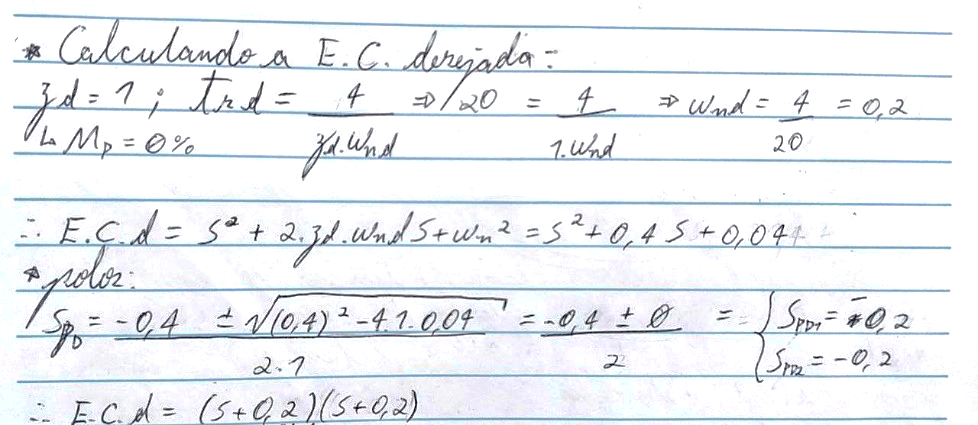 * Calculando a E.C. desejada:
zd = 1 ; trd = 4 / zd.Wnd => 20 = 4 / 1.Wnd => Wnd = 4 / 20 = 0,2
↳ Mp = 0%
∴ E.C.d = S² + 2.zd.WndS + Wn² = S² + 0,4 S + 0,04
* polos:
SpD = -0,4 ± √(0,4)² - 4.1.0,04 / 2.1 = -0,4 ± 0 / 2 = { SPD1 = -0,2
SPD2 = -0,2
∴ E.C.d = (S+0,2)(S+0,2)